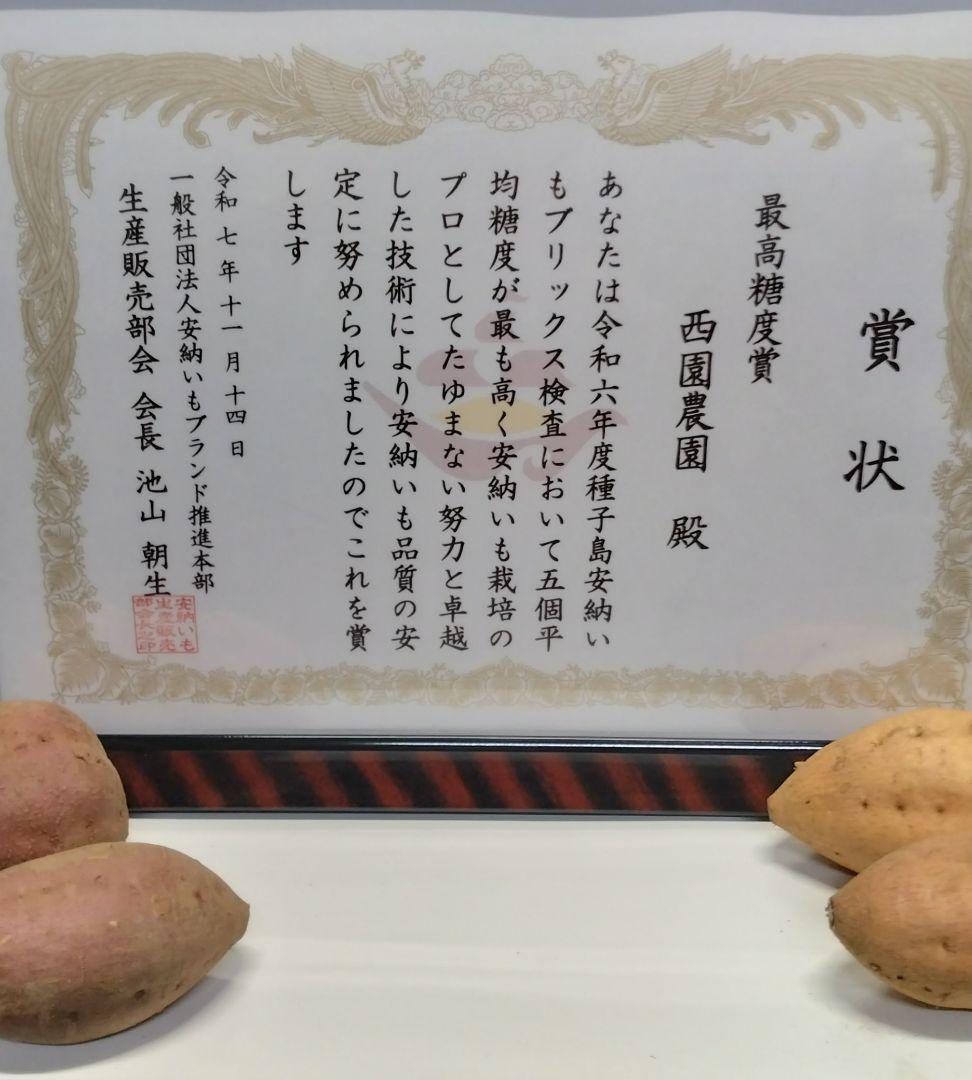 賞状
最高糖度賞
西園農園 殿
あなたは令和六年度種子島安納い
もブリックス検査において五個平
均糖度が最も高く安納いも栽培の
プロとしてたゆまない努力と卓越
した技術により安納いも品質の安
定に努められましたのでこれを賞
します
令和七年十一月十四日
一般社団法人安納いもブランド推進本部
生産販売部会 会長 池山 朝生
安納いも
生産販売
部会長之印